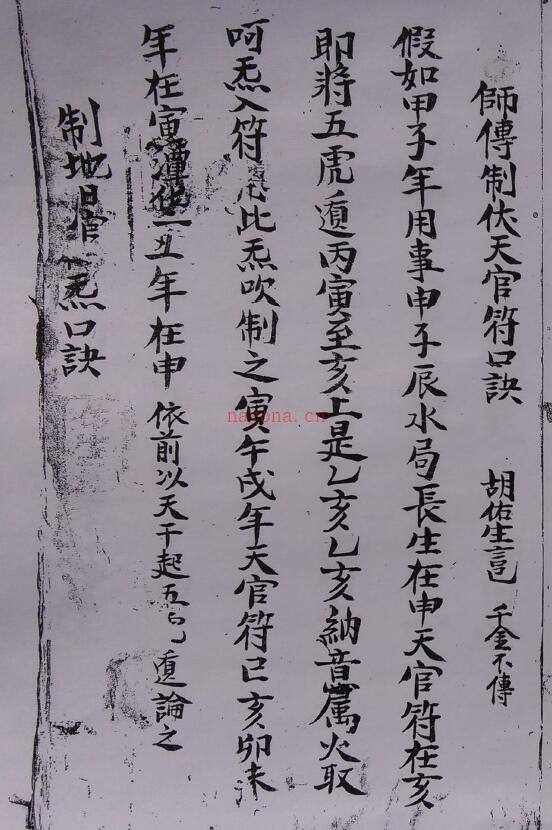 師傳制伏天官符口訣 胡佑生 千金不傳
假如甲子年用事申子辰水局長生在申天官符在亥
即將五虎遁丙寅至亥上是乙亥乙亥納音属火取
呵炁入符 此炁吹制之寅午戌年天官符巳亥卯未
年在寅 丑年在申 依前以天干起五 遁論之
制地官 炁口訣
nayona.cn